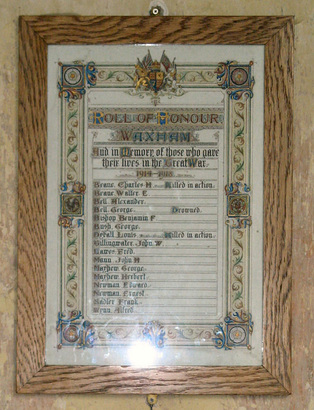 ROLL OF HONOUR
WAXHAM
And in Memory of those who gave
their lives in the Great War
1914-1918
Beane Charles H Killed in action.
Beane Walter E.
Bell Alexander.
Bell George. Drowned.
Bishop Benjamin F
Bush George.
Deball Louis Killed in action.
Gillingwater John W
Lawes Fred.
Mann John H
Mayhew George.
Mayhew Herbert.
Newman Edward.
Newman Ernest.
Sadler Frank.
Wynn Alfred.